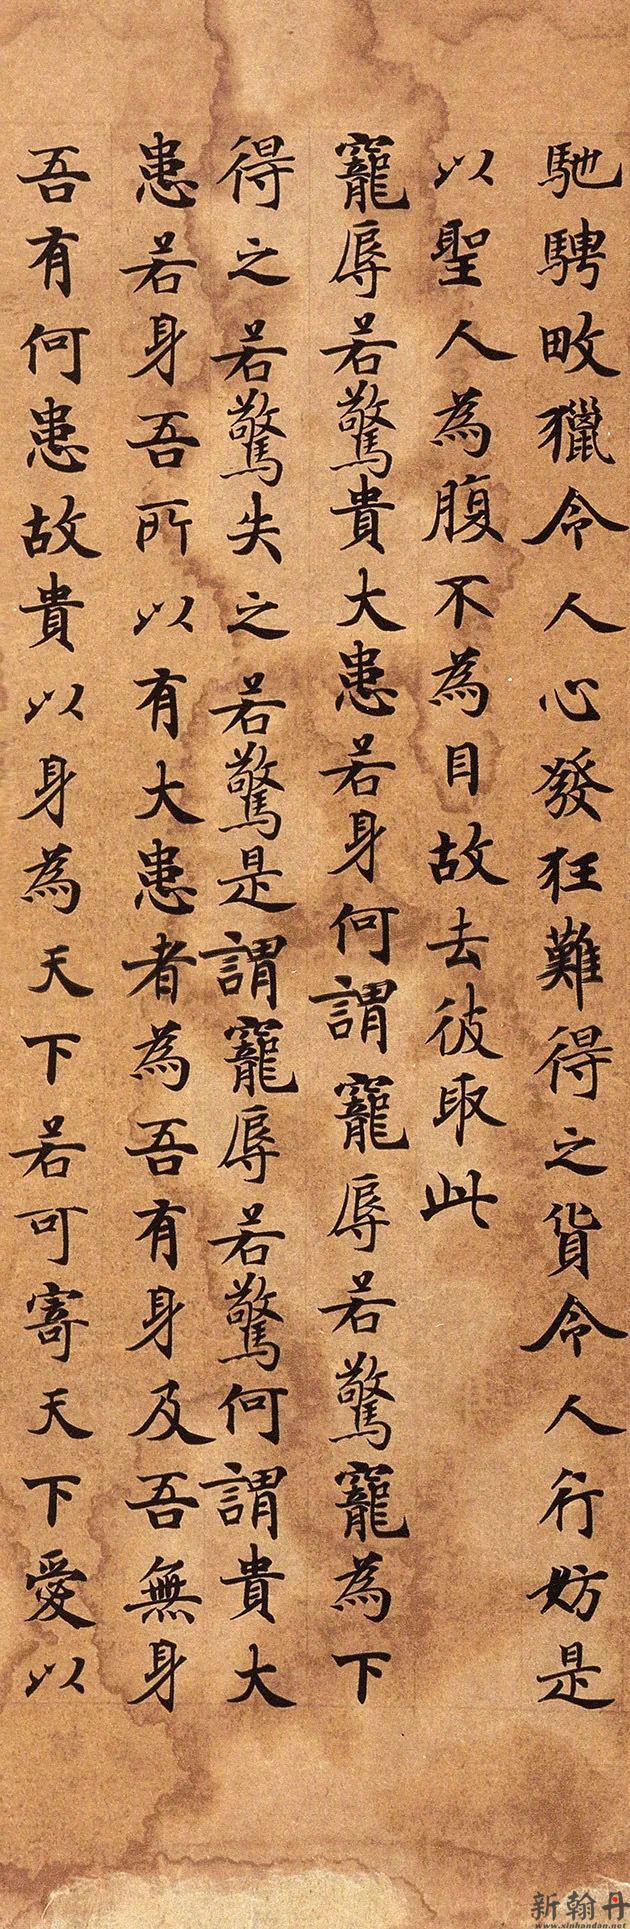 馳騁畋獵令人心發狂難得之貨令人行妨是
以聖人為腹不為目故去彼取此
寵辱若驚貴大患若身何謂寵辱若驚寵為下
得之若驚失之若驚是謂寵辱若驚何謂貴大
患若身吾所以有大患者為吾有身及吾無身
吾有何患故貴以身為天下若可寄天下愛以
新翰丹
www.xinhandan.net